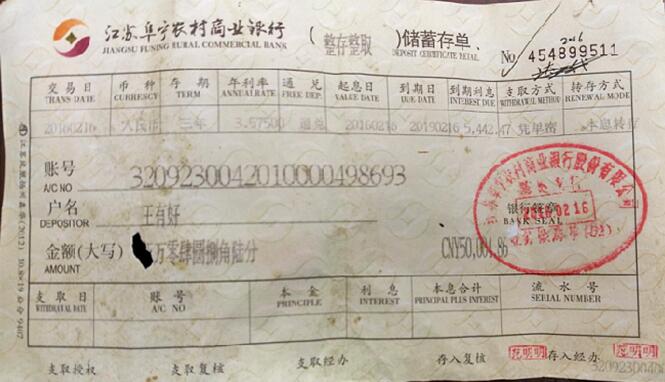 江苏阜宁农村商业银行
JIANGSU FUNING RURAL COMMERCIAL BANK
(整存整取)储蓄存单
DEPOSIT CERTIFICATE RETAIL
No 454899511
交易日 币种 存期 年利率 通兑 起息日 到期日 到期利息 支取方式 转存方式
TRANS DATE CURRENCY TERM ANNUALRATE FREE DEP. VALUE DATE DUE DATE INTEREST DUE WITHDRAWAL METHOD RENEWAL MODE
20160216 人民币 三年 3.57500 通兑 20160216 20190216 5,442.47 凭单密 本息转存
账号 3209230042010000498693
A/C NO
户名 王有好
DEPOSITOR
银行签章
BANK SEAL
2016 02 16
金额(大写) 万零肆圆捌角陆分 CNY50,004.86
AMOUNT
支取日 账号 本金 利息 本息合计 流水号
WITHDRAWAL DATE A/C NO PRINCIPLE INTEREST PRINCIPAL PLUS INTEREST SERIAL NUMBER
支取授权 支取复核 支取经办 存入复核 存入经办